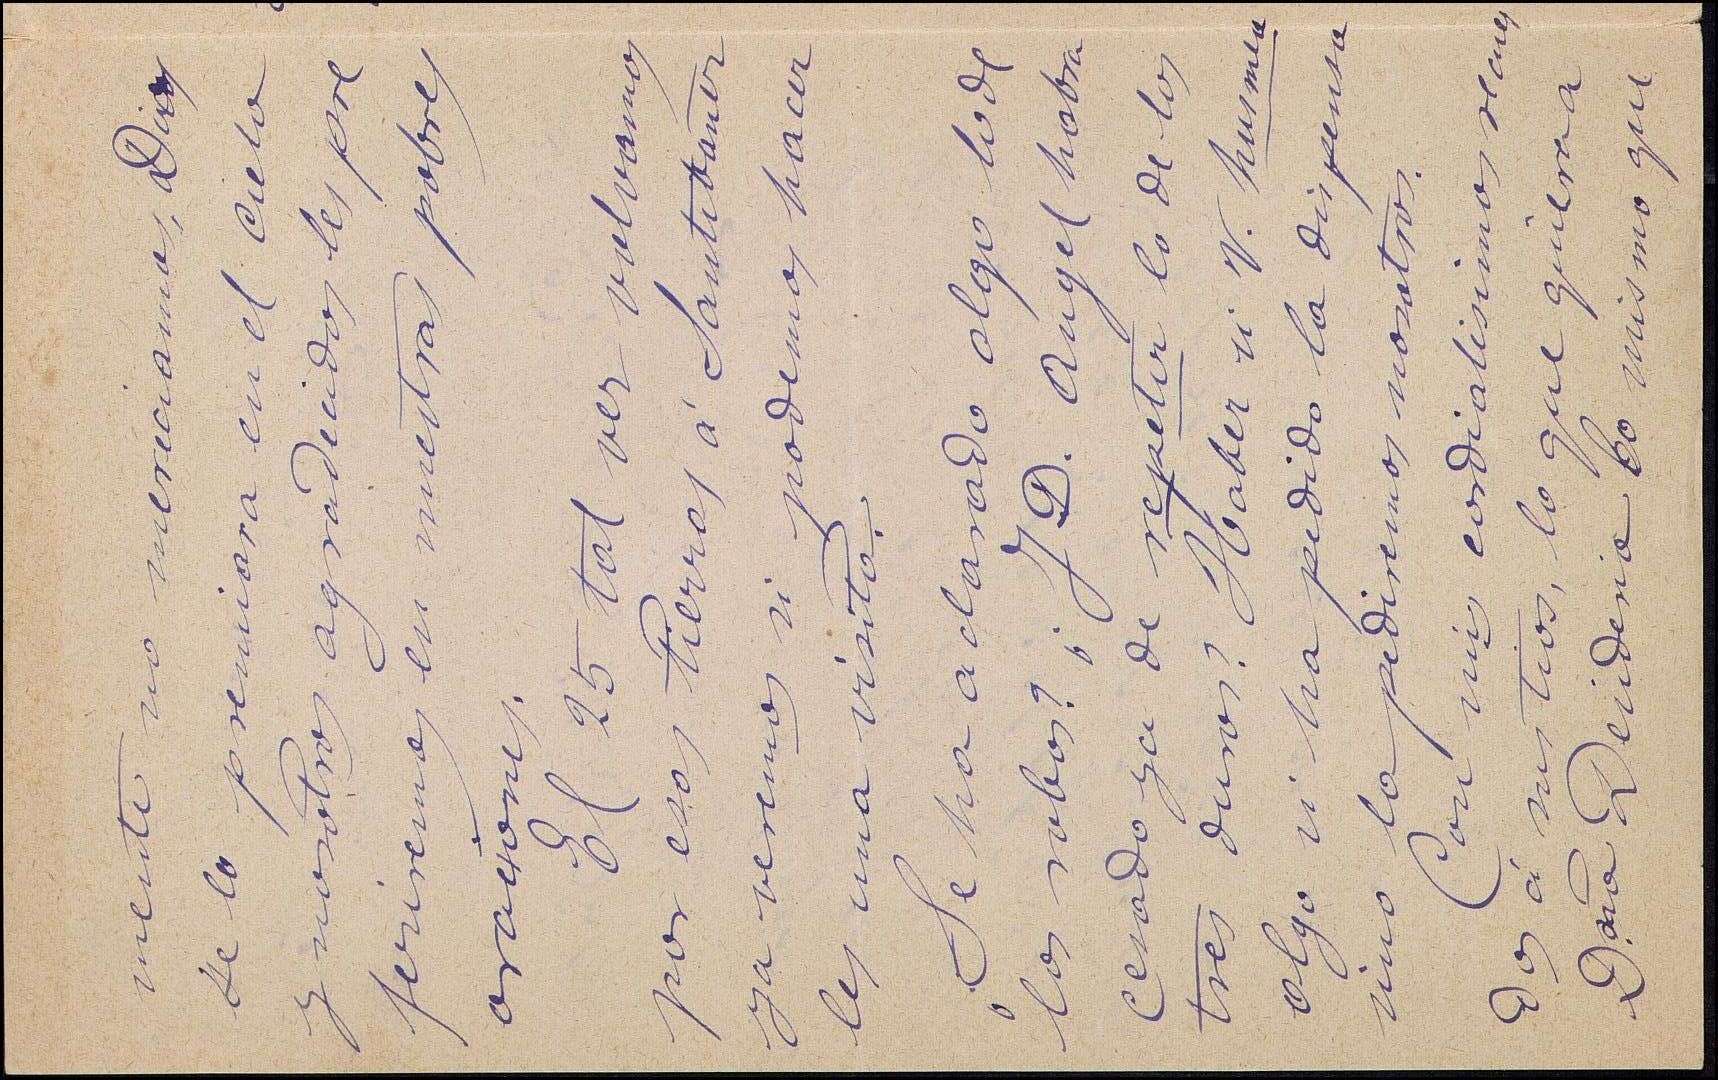 mente no mereciamos, Dios
se lo premiara en el cielo
y nosotros agradecidos les pre
feriremos en nuestras pobres
oraciones.
El 25 tal vez volvamos
por esas tierras á Santander
ya veremos si podemos hacer
les una visita.
¿Se ha aclarado algo lo de
los robos? ¿Y D. Angel habra
cesado ya de repetir lo de los
tres duros? Haber si V. husmea
algo si ha pedido la dispensa
sino la pediremos nosotros.
Con mis cordialisimos recuer
dos á sus tios, lo que quiera
Dãa Desideria lo mismo que